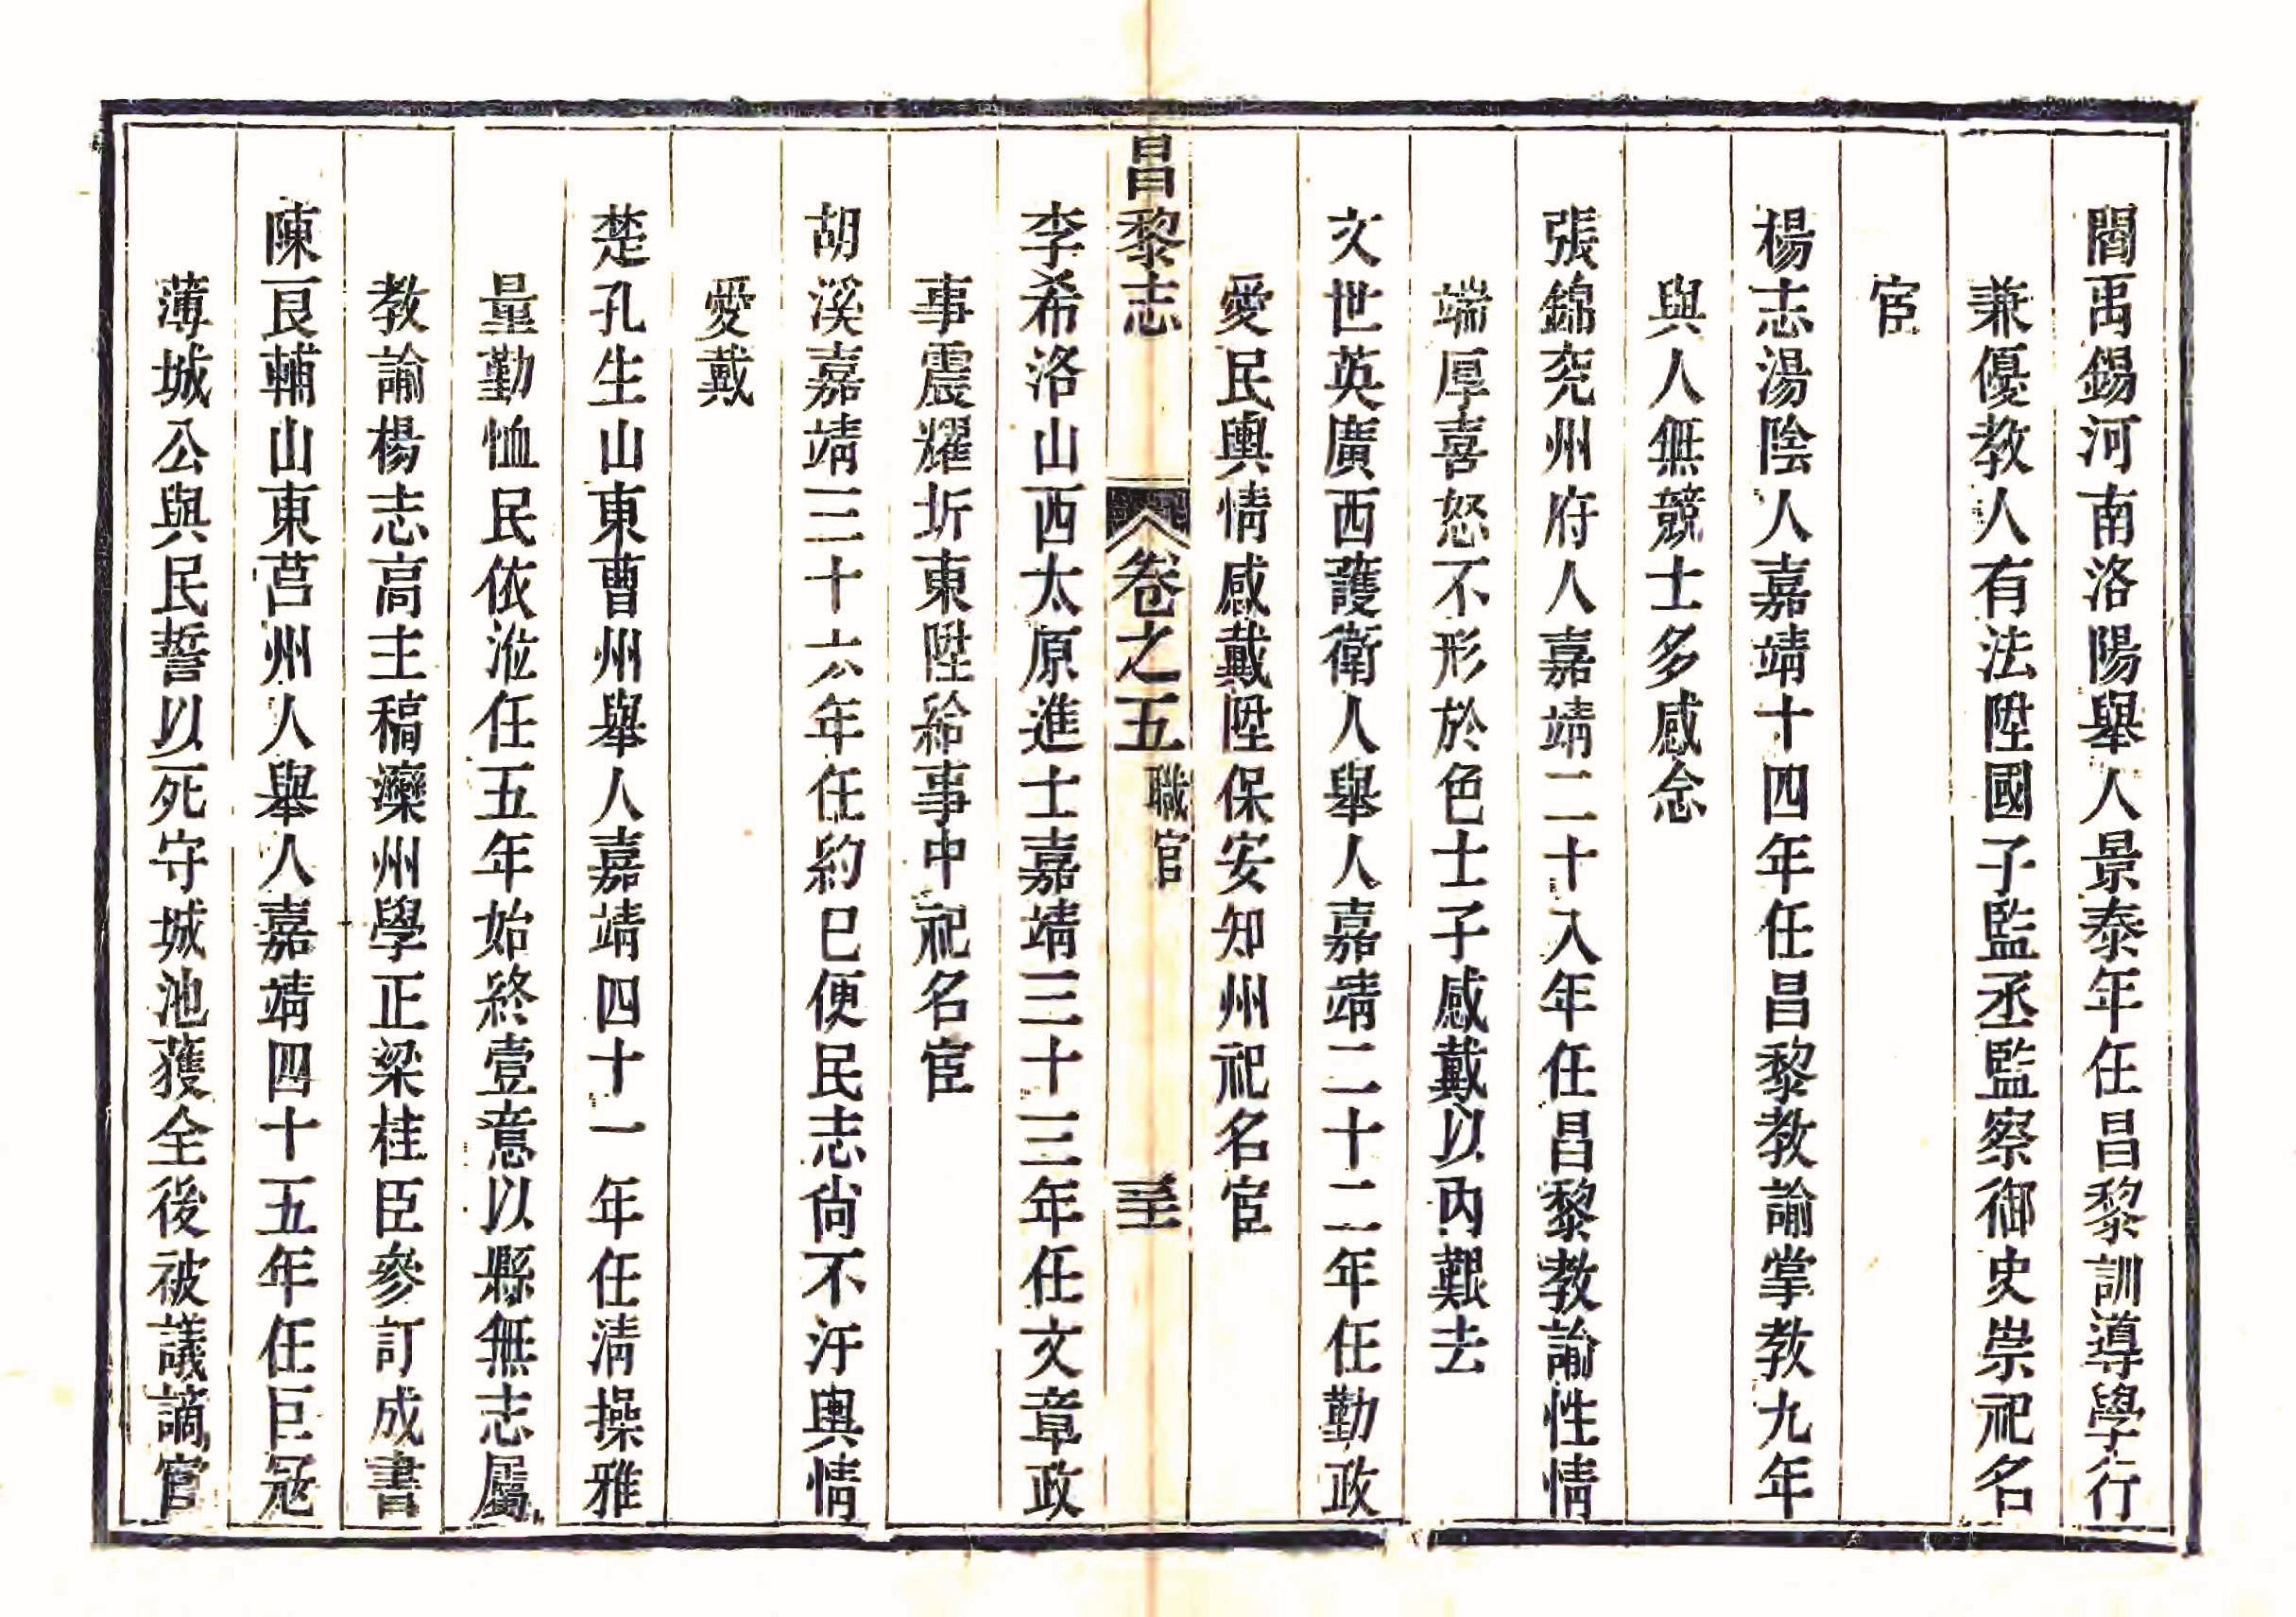 閻禹錫河南洛陽舉人景泰年任昌黎訓導學行
兼優教人有法陞國子監丞監察御史崇祀名
宦
楊志湯陰人嘉靖十四年任昌黎教諭掌教九年
與人無競士多感念
張錦兖州府人嘉靖二十八年任昌黎教諭性情
端厚喜怒不形於色士子感戴以內艱去
文世英廣西護衛人舉人嘉靖二十二年任勤政
愛民輿情感戴陞保安知州祀名宦
昌黎志 卷之五 職官 三十
李希洛山西太原進士嘉靖三十三年任文章政
事震耀圻東陞給事中祀名宦
胡溪嘉靖三十六年任約巳便民志尚不汙輿情
愛戴
楚孔生山東曹州舉人嘉靖四十一年任清操雅
量勤恤民依涖任五年始終壹意以縣無志屬
教諭楊志高主稿灤州學正梁桂臣參訂成書
陳艮輔山東莒州人舉人嘉靖四十五年任巨冦
薄城公與民誓以死守城池獲全後被議謫官